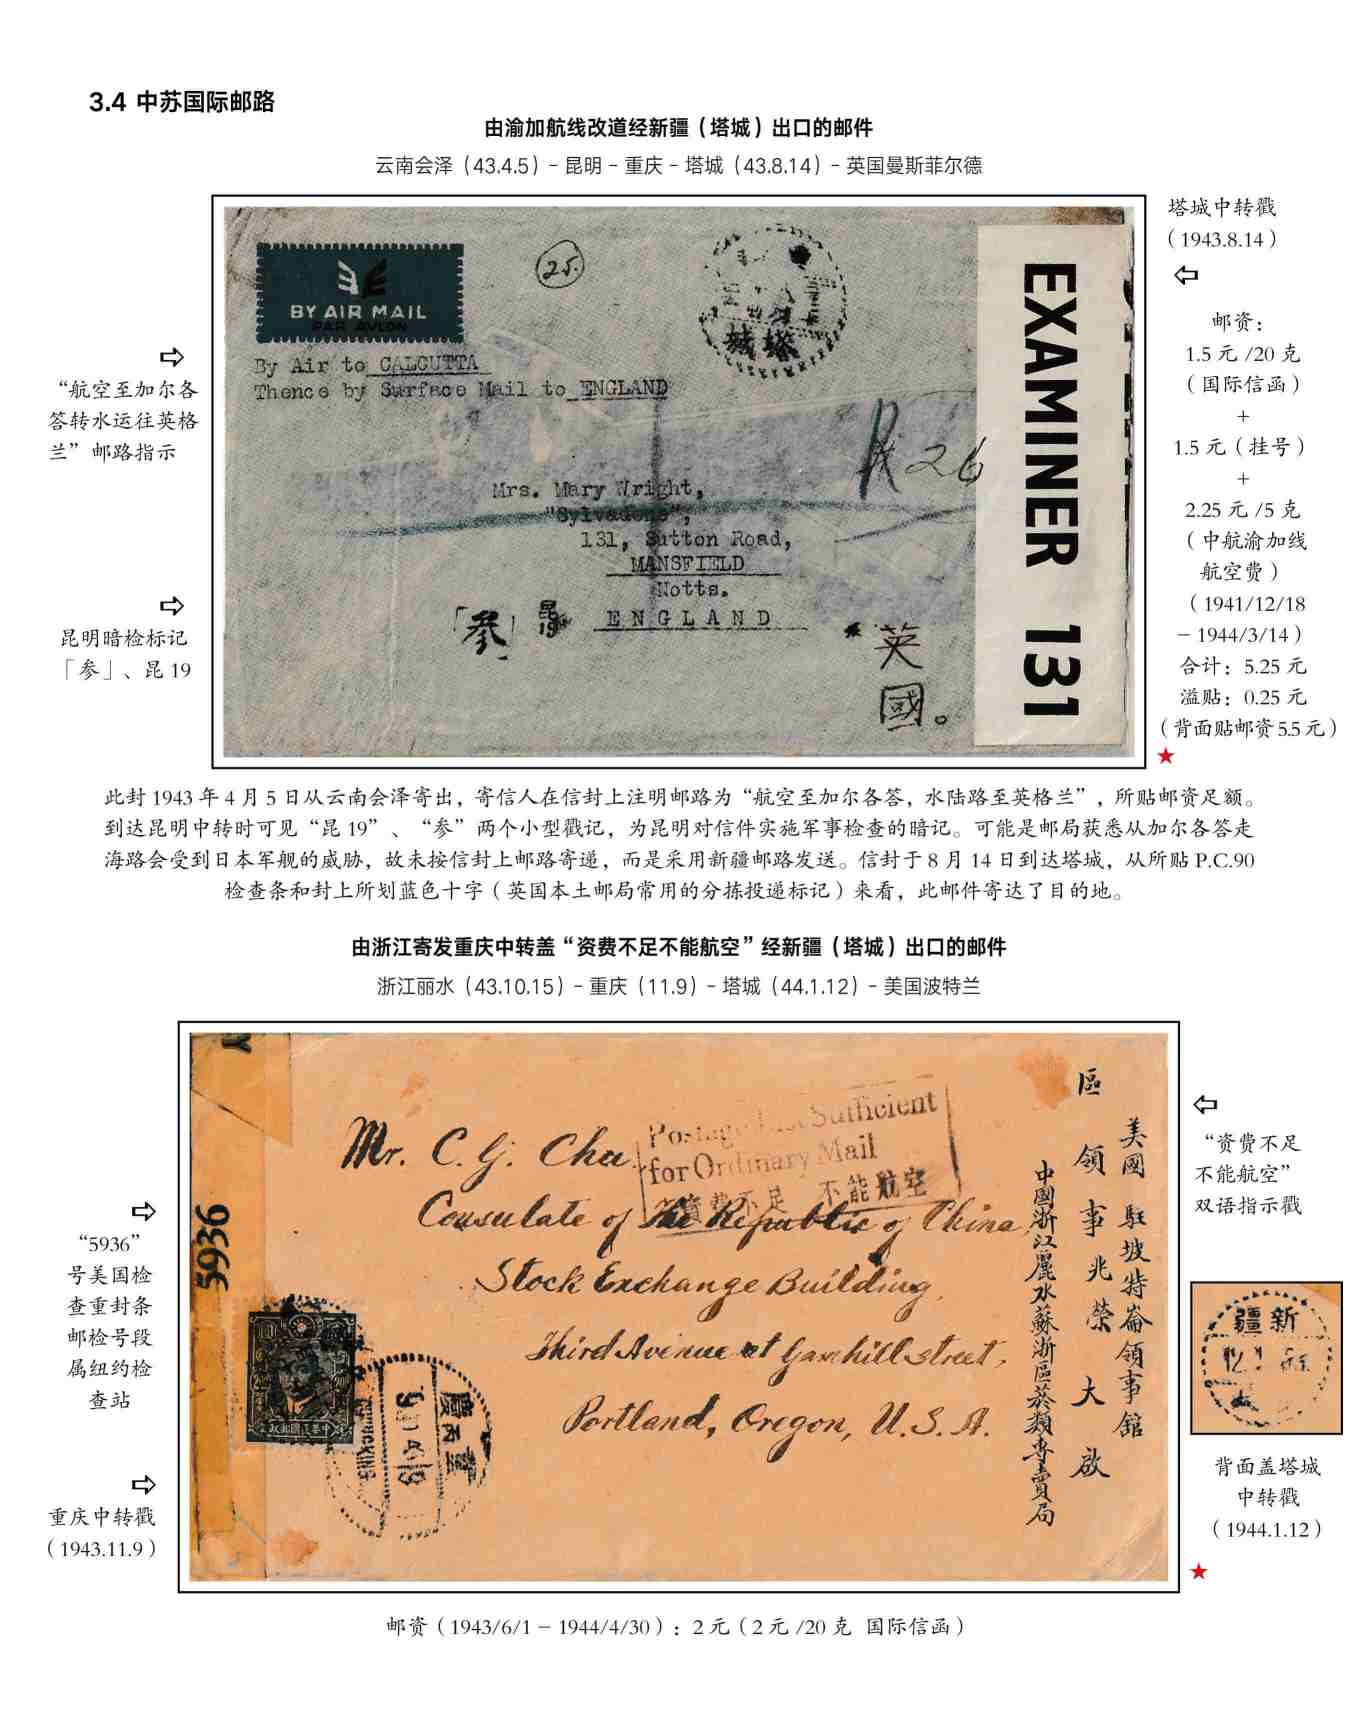 3.4 中苏国际邮路
由渝加航线改道经新疆（塔城）出口的邮件
云南会泽（43.4.5）– 昆明 – 重庆 – 塔城（43.8.14）– 英国曼斯菲尔德
“航空至加尔各
答转水运往英格
兰”邮路指示
昆明暗检标记
「参」、昆 19
25.
BY AIR MAIL
PAR AVION
By Air to CALCUTTA
Thence by Surface Mail to ENGLAND
城塔
R 26
Mrs. Mary Wright,
131, Sutton Road,
MANSFIELD
Notts.
ENGLAND
「参」
昆19
英
國。
EXAMINER 131
塔城中转戳
（1943.8.14）
邮资：
1.5 元 /20 克
（国际信函）
+
1.5 元（挂号）
+
2.25 元 /5 克
（中航渝加线
航空费）
（1941/12/18
– 1944/3/14）
合计：5.25 元
溢贴：0.25 元
（背面贴邮资 5.5 元）
此封 1943 年 4 月 5 日从云南会泽寄出，寄信人在信封上注明邮路为“航空至加尔各答，水陆路至英格兰”，所贴邮资足额。
到达昆明中转时可见“昆 19”、“参”两个小型戳记，为昆明对信件实施军事检查的暗记。可能是邮局获悉从加尔各答走
海路会受到日本军舰的威胁，故未按信封上邮路寄递，而是采用新疆邮路发送。信封于 8 月 14 日到达塔城，从所贴 P.C.90
检查条和封上所划蓝色十字（英国本土邮局常用的分拣投递标记）来看，此邮件寄达了目的地。
由浙江寄发重庆中转盖“资费不足不能航空”经新疆（塔城）出口的邮件
浙江丽水（43.10.15）– 重庆（11.9）– 塔城（44.1.12）– 美国波特兰
“5936”
号美国检
查重封条
邮检号段
属纽约检
查站
重庆中转戳
（1943.11.9）
5936
Mr. C. G. Cha
Consulate of the Republic of China
Stock Exchange Building,
Third Avenue at Yamhill street,
Portland, Oregon, U. S. A.
Sufficient
for Ordinary Mail
資費不足 不能航空
美國駐坡特崙領事館
區領事兆榮大啟
中國浙江麗水蘇浙區菸類專賣局
“资费不足
不能航空”
双语指示戳
疆新
背面盖塔城
中转戳
（1944.1.12）
邮资（1943/6/1 – 1944/4/30）：2 元（2 元 /20 克 国际信函）